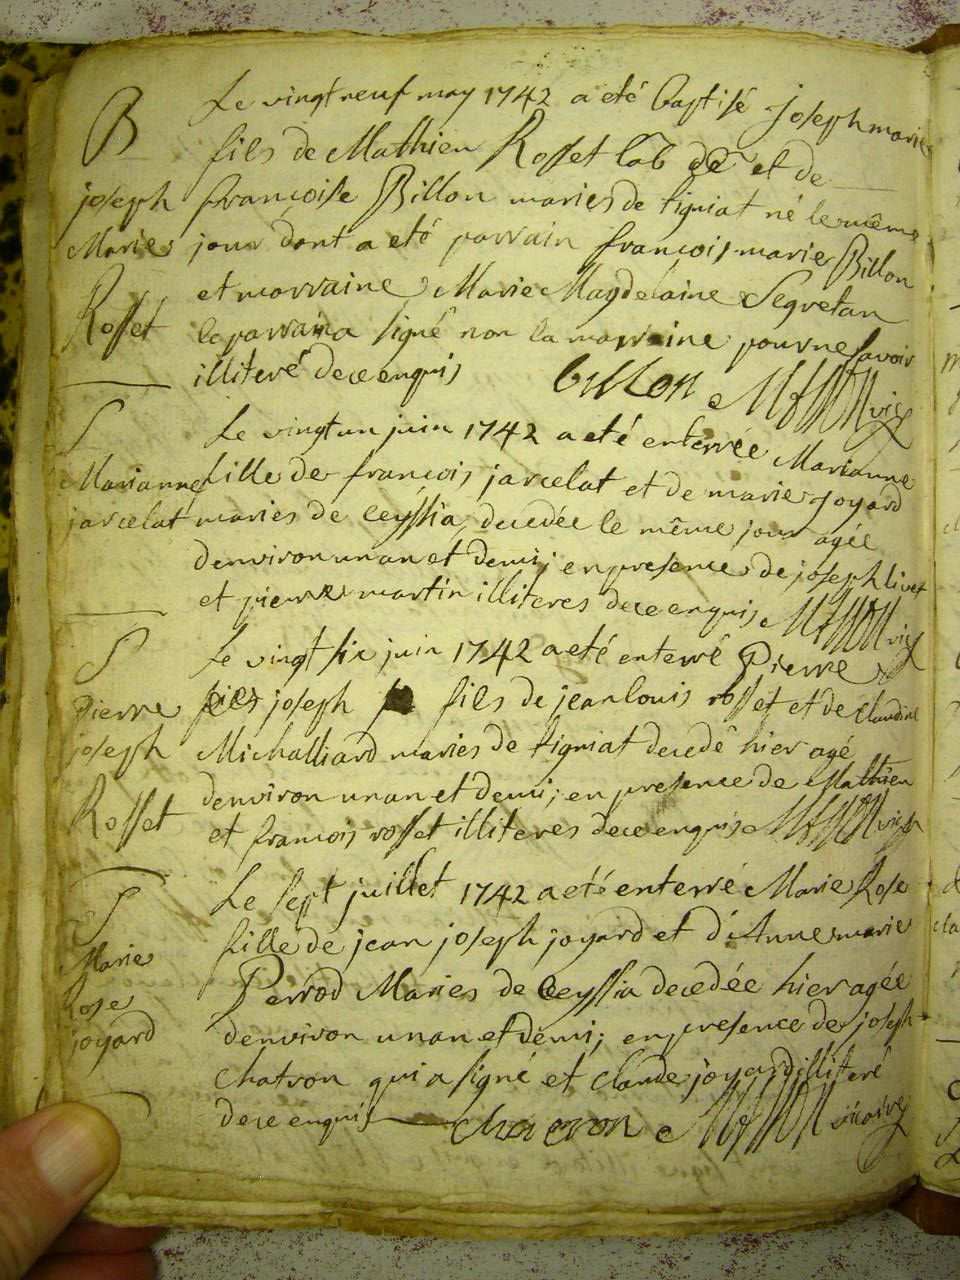 B
Le vingt neuf may 1742 a eté baptisé joseph marie
fils de Mathieu Rosset lab et de
joseph françoise Billon mariés de tigniat né le même
Marie jour dont a eté parrain françois marie Billon
et marraine Marie Magdelaine Segretan
Rosset le parrain a signé non la marraine pour ne savoir
illiteré de ce enquis billon
S
Le vingt un juin 1742 a eté enterrée Marianne
Marianne fille de françois jarcelat et de marie joyard
jarcelat mariés de Ceyssia decedée le même jour agée
denviron un an et demi; en presence de joseph livet
et pierre martin illiteres de ce enquis
S
Le vingt six juin 1742 a eté enterré Pierre
Pierre joseph fils de jean louis rosset et de claudine
joseph Michalliard mariés de tigniat decedé hier agé
denviron un an et demi; en presence de Mathieu
Rosset et françois rosset illiteres de ce enquis
S
Le sept juillet 1742 a eté enterré Marie Rose
fille de jean joseph joyard et d'Anne marie
Marie
Rose Perrod Mariés de Ceyssia decedée hier agée
joyard denviron un an et demi; en presence de joseph
chatron qui a signé et claude joyard illiteré
de ce enquis chatron vicaire